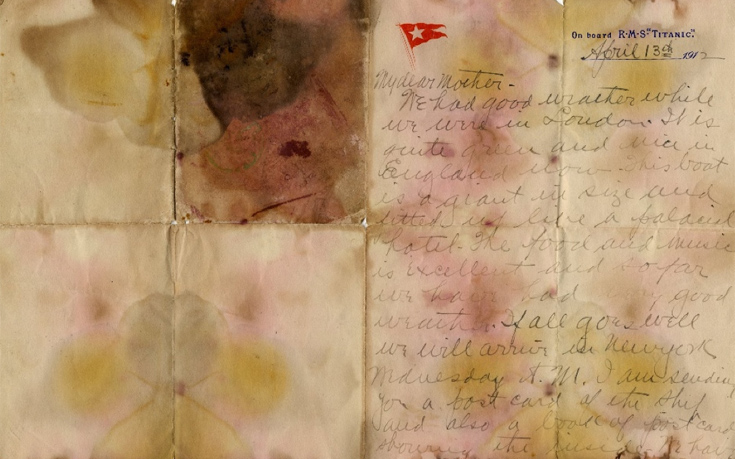 On board R·M·S "TITANIC".
April 13th 1912
My dear Mother -
We had good weather while
we were in London. It is
quite green and nice in
England now. This boat
is a giant in size and
fitted up like a palacial
hotel. The food and music
is excellent and so far
we have had very good
weather. If all goes well
we will arrive in New York
Wednesday A. M. I am sending
you a post card of the ship
and also a book of post cards
showing the inside